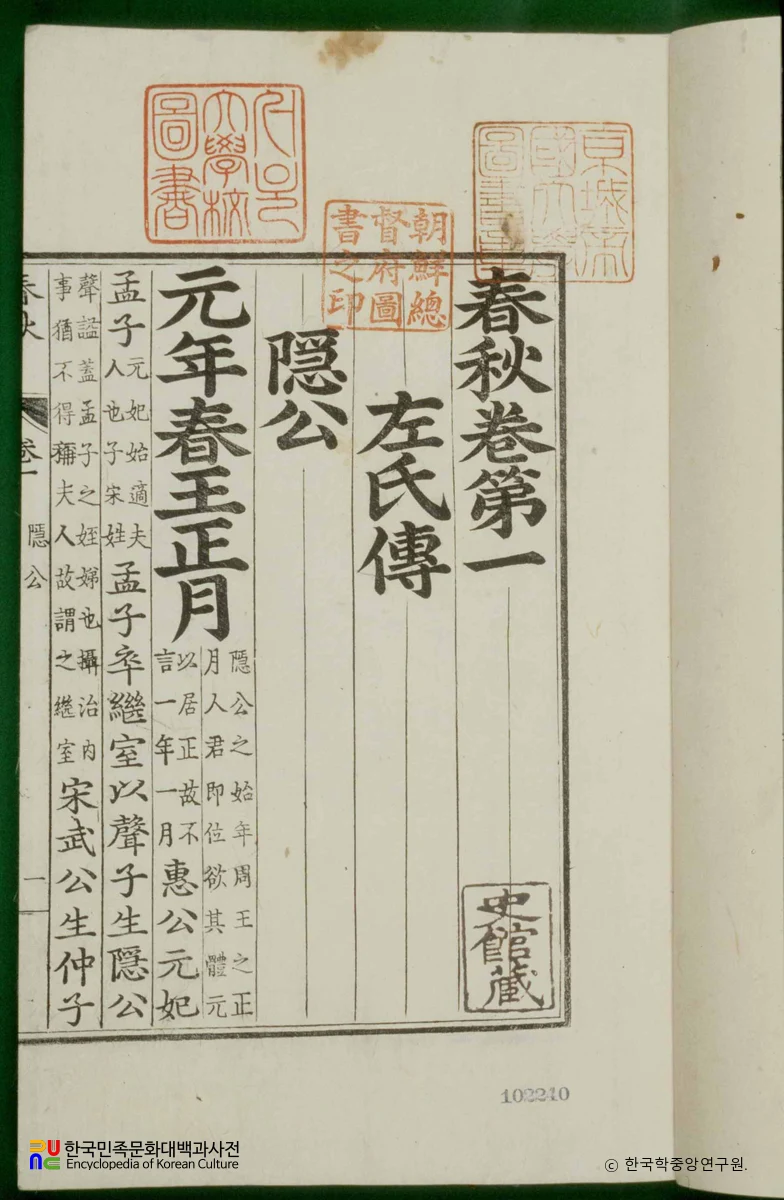 京城帝
國大學
圖書章
朝鮮總
督府圖
書之印
大學校
圖書
春秋卷第一
史館藏
左氏傳
隠公
元年春王正月隠公之始年周王之正月人君即位欲其體元以居正故不言一年一月惠公元妃
孟子元妃始適夫人也子宋姓孟子卒繼室以聲子生隠公
聲謚蓋孟子之姪娣也攝治內事猶不得稱夫人故謂之繼室宋武公生仲子
春秋 卷一 隠公 一
102240
한국민족문화대백과사전
Encyclopedia of Korean Culture
ⓒ 한국학중앙연구원.